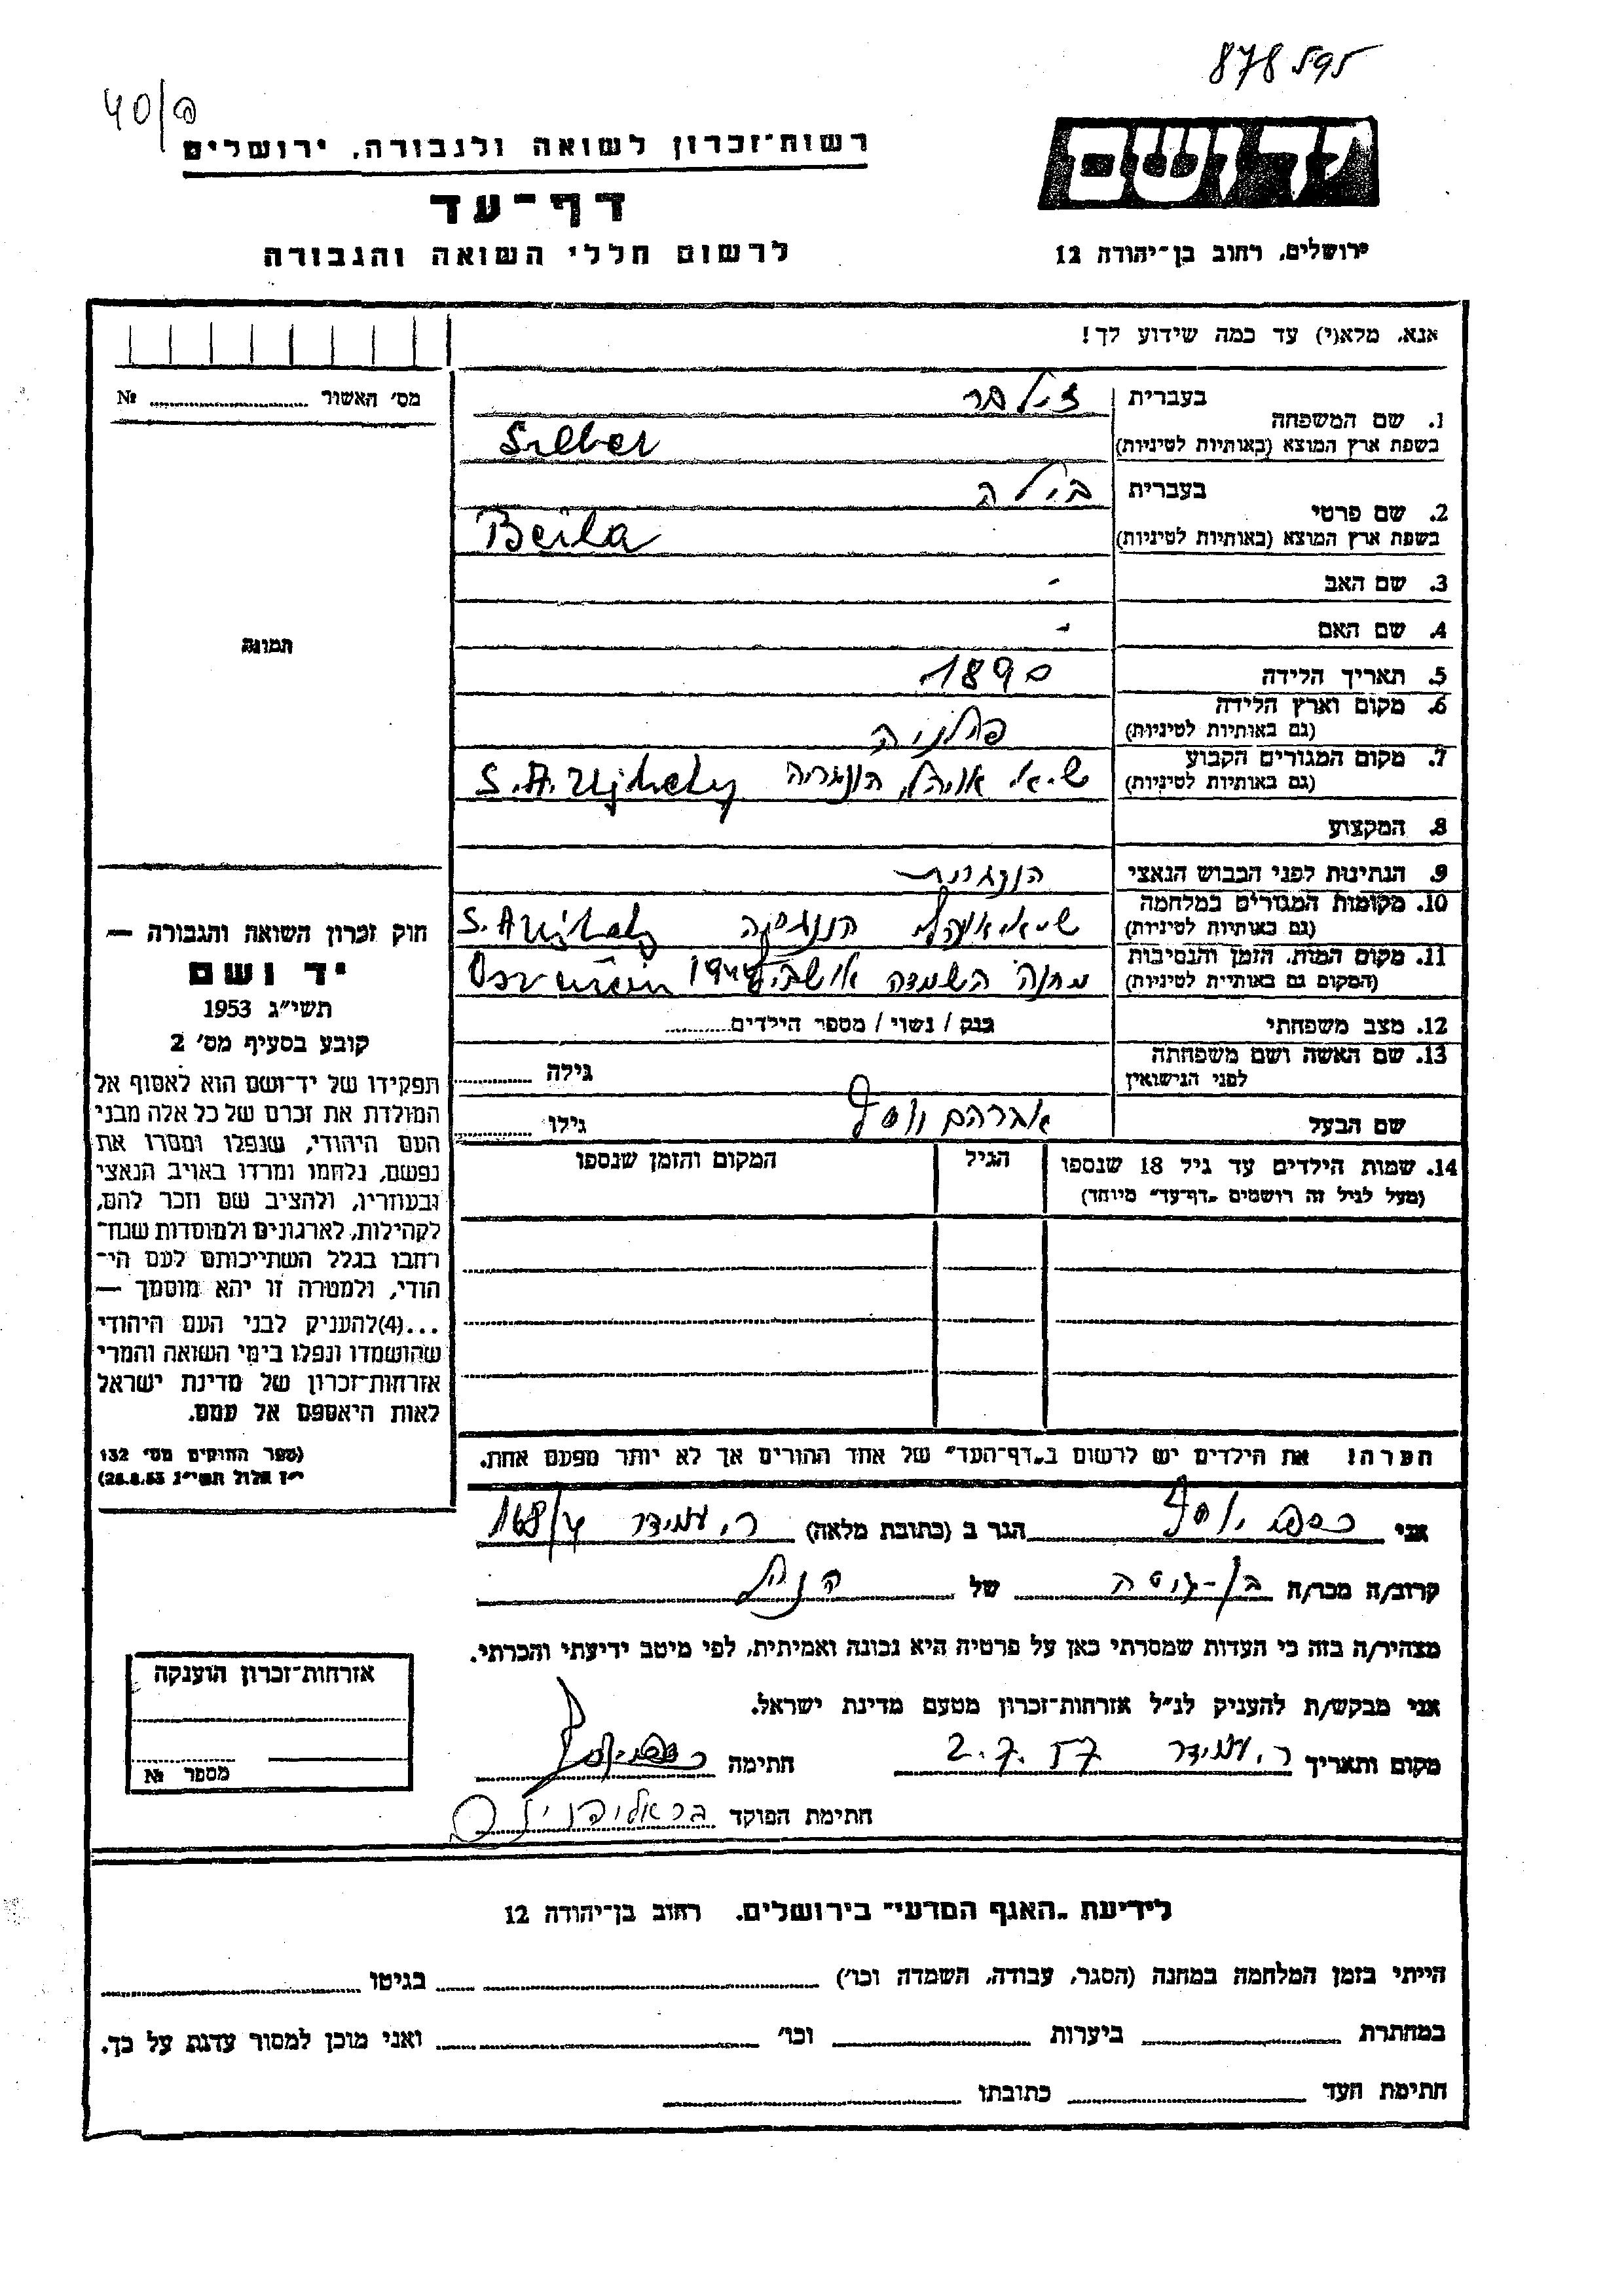 878595
40/ם
יד ושם
רשות־זכרון לשואה ולגבורה, ירושלים
דף־עד
לרשום חללי השואה והגבורה
ירושלים, רחוב בן־יהודה 12
אנא, מלא(י) עד כמה שידוע לך!
מס' האשור № ........
תמונה
1. שם המשפחה בעברית זילבר
בשפת ארץ המוצא (באותיות לטיניות) Silber
2. שם פרטי בעברית בילה
בשפת ארץ המוצא (באותיות לטיניות) Beila
3. שם האב -
4. שם האם -
5. תאריך הלידה 1890
6. מקום וארץ הלידה (גם באותיות לטיניות) פולניה
7. מקום המגורים הקבוע (גם באותיות לטיניות) ש.א. אויהל הונגריה S.A.Ujhely
8. המקצוע
9. הנתינות לפני הכבוש הנאצי הונגרית
10. מקומות המגורים במלחמה (גם באותיות לטיניות) הונגריה S.A.Ujhely
11. מקום המות, הזמן והנסיבות (המקום גם באותיית לטיניות) מחנה השמדה 1944
12. מצב משפחתי רווק / נשוי / מספר הילדים........
13. שם האשה ושם משפחתה לפני הנישואין גילה ........
שם הבעל אברהם יוסף גילו ........
14. שמות הילדים עד גיל 18 שנספו (מעל לגיל זה רושמים „דף־עד" מיוחד) הגיל המקום והזמן שנספו
חוק זכרון השואה והגבורה —
יד ושם
תשי"ג 1953
קובע בסעיף מס' 2
תפקידו של יד־ושם הוא לאסוף אל
המולדת את זכרם של כל אלה מבני
העם היהודי, שנפלו ומסרו את
נפשם, נלחמו ומרדו באויב הנאצי
ובעוזריו, ולהציב שם וזכר להם,
לקהילות, לארגונים ולמוסדות שנח־
רחבו בגלל השתייכותם לעם הי־
הודי, ולמטרה זו יהא מוסמך —
...(4)להעניק לבני העם היהודי
שהושמדו ונפלו בימי השואה והמרי
אזרחות־זכרון של מדינת ישראל
לאות היאספם אל עמם.
(ספר החוקים מס' 132
י"ז אלול תשי"ג 28.8.53)
הערה! את הילדים יש לרשום ב„דף־העד" של אחד ההורים אך לא יותר מפעם אחת.
אני יוסף הגר ב (כתובת מלאה) ר. עמידר 168/4
קרוב/ה מכר/ה בן-דודה של הנ"ל
מצהיר/ה בזה כי העדות שמסרתי כאן על פרטיה היא נכונה ואמיתית, לפי מיטב ידיעתי והכרתי.
אני מבקש/ת להעניק לנ"ל אזרחות־זכרון מטעם מדינת ישראל.
מקום ותאריך ר. עמידר 2.7.57 חתימה
חתימת הפוקד
אזרחות־זכרון הוענקה
מספר №
לידיעת „האגף המדעי" בירושלים. רחוב בן־יהודה 12
הייתי בזמן המלחמה במחנה (הסגר, עבודה, השמדה וכו') ........ בגיטו ........
במחתרת ........ ביערות ........ וכו' ........ ואני מוכן למסור עדות על כך.
חתימת העד ........ כתובתו ........